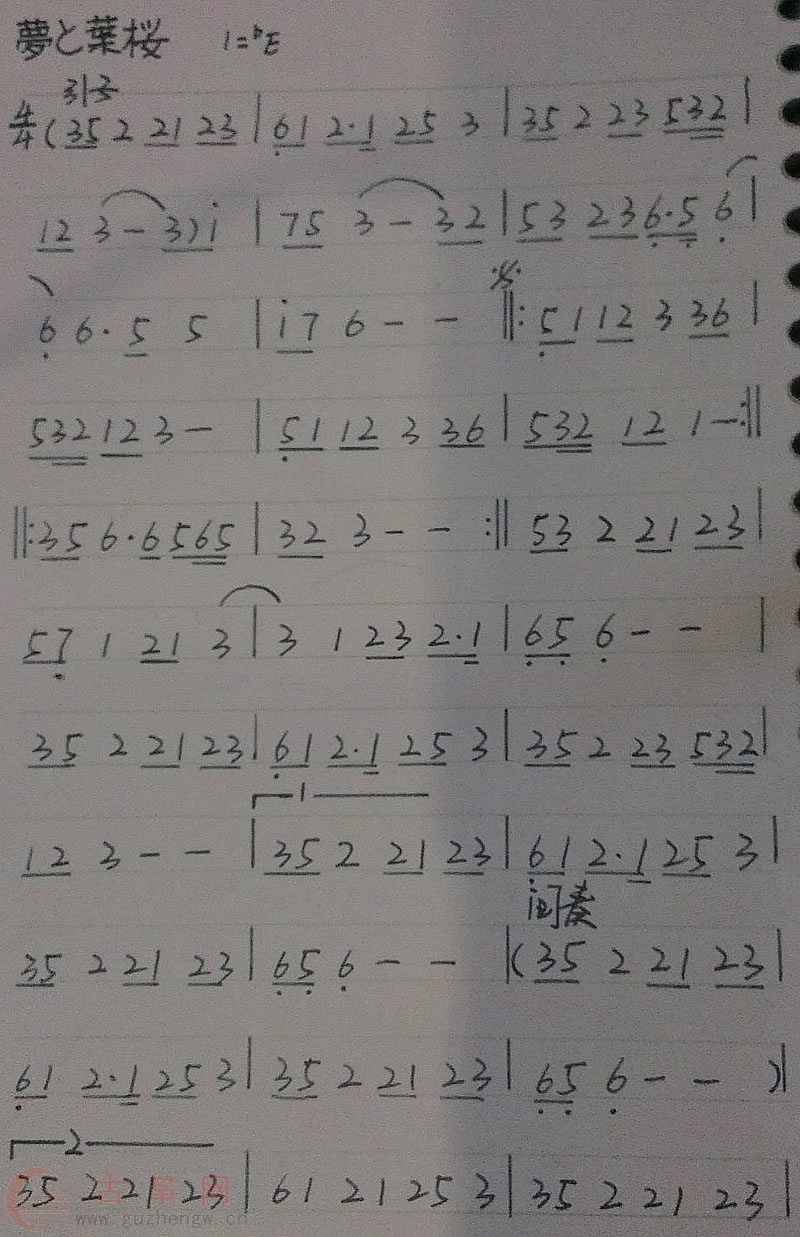 夢と葉桜 1=ᵇE
引子
4/4 (35 2 21 23 | 61 2·1 25 3 | 35 2 23 532 |
12 3 - 3) i | 75 3 - 32 | 53 23 6·5 6 |
6 6· 5 5 | i7 6 - - ‖: 51 12 3 36 |
532 12 3 - | 51 12 3 36 | 532 12 1 - :‖
‖: 35 6·6 565 | 32 3 - - :‖ 53 2 21 23 |
57 1 21 3 | 3 1 23 2·1 | 65 6 - - |
35 2 21 23 | 61 2·1 25 3 | 35 2 23 532 |
1
12 3 - - | 35 2 21 23 | 61 2·1 25 3 |
间奏
35 2 21 23 | 65 6 - - | (35 2 21 23 |
61 2·1 25 3 | 35 2 21 23 | 65 6 - - ) |
2
35 2 21 23 | 61 21 25 3 | 35 2 21 23 |
古筝网
www.guzhengw.cn